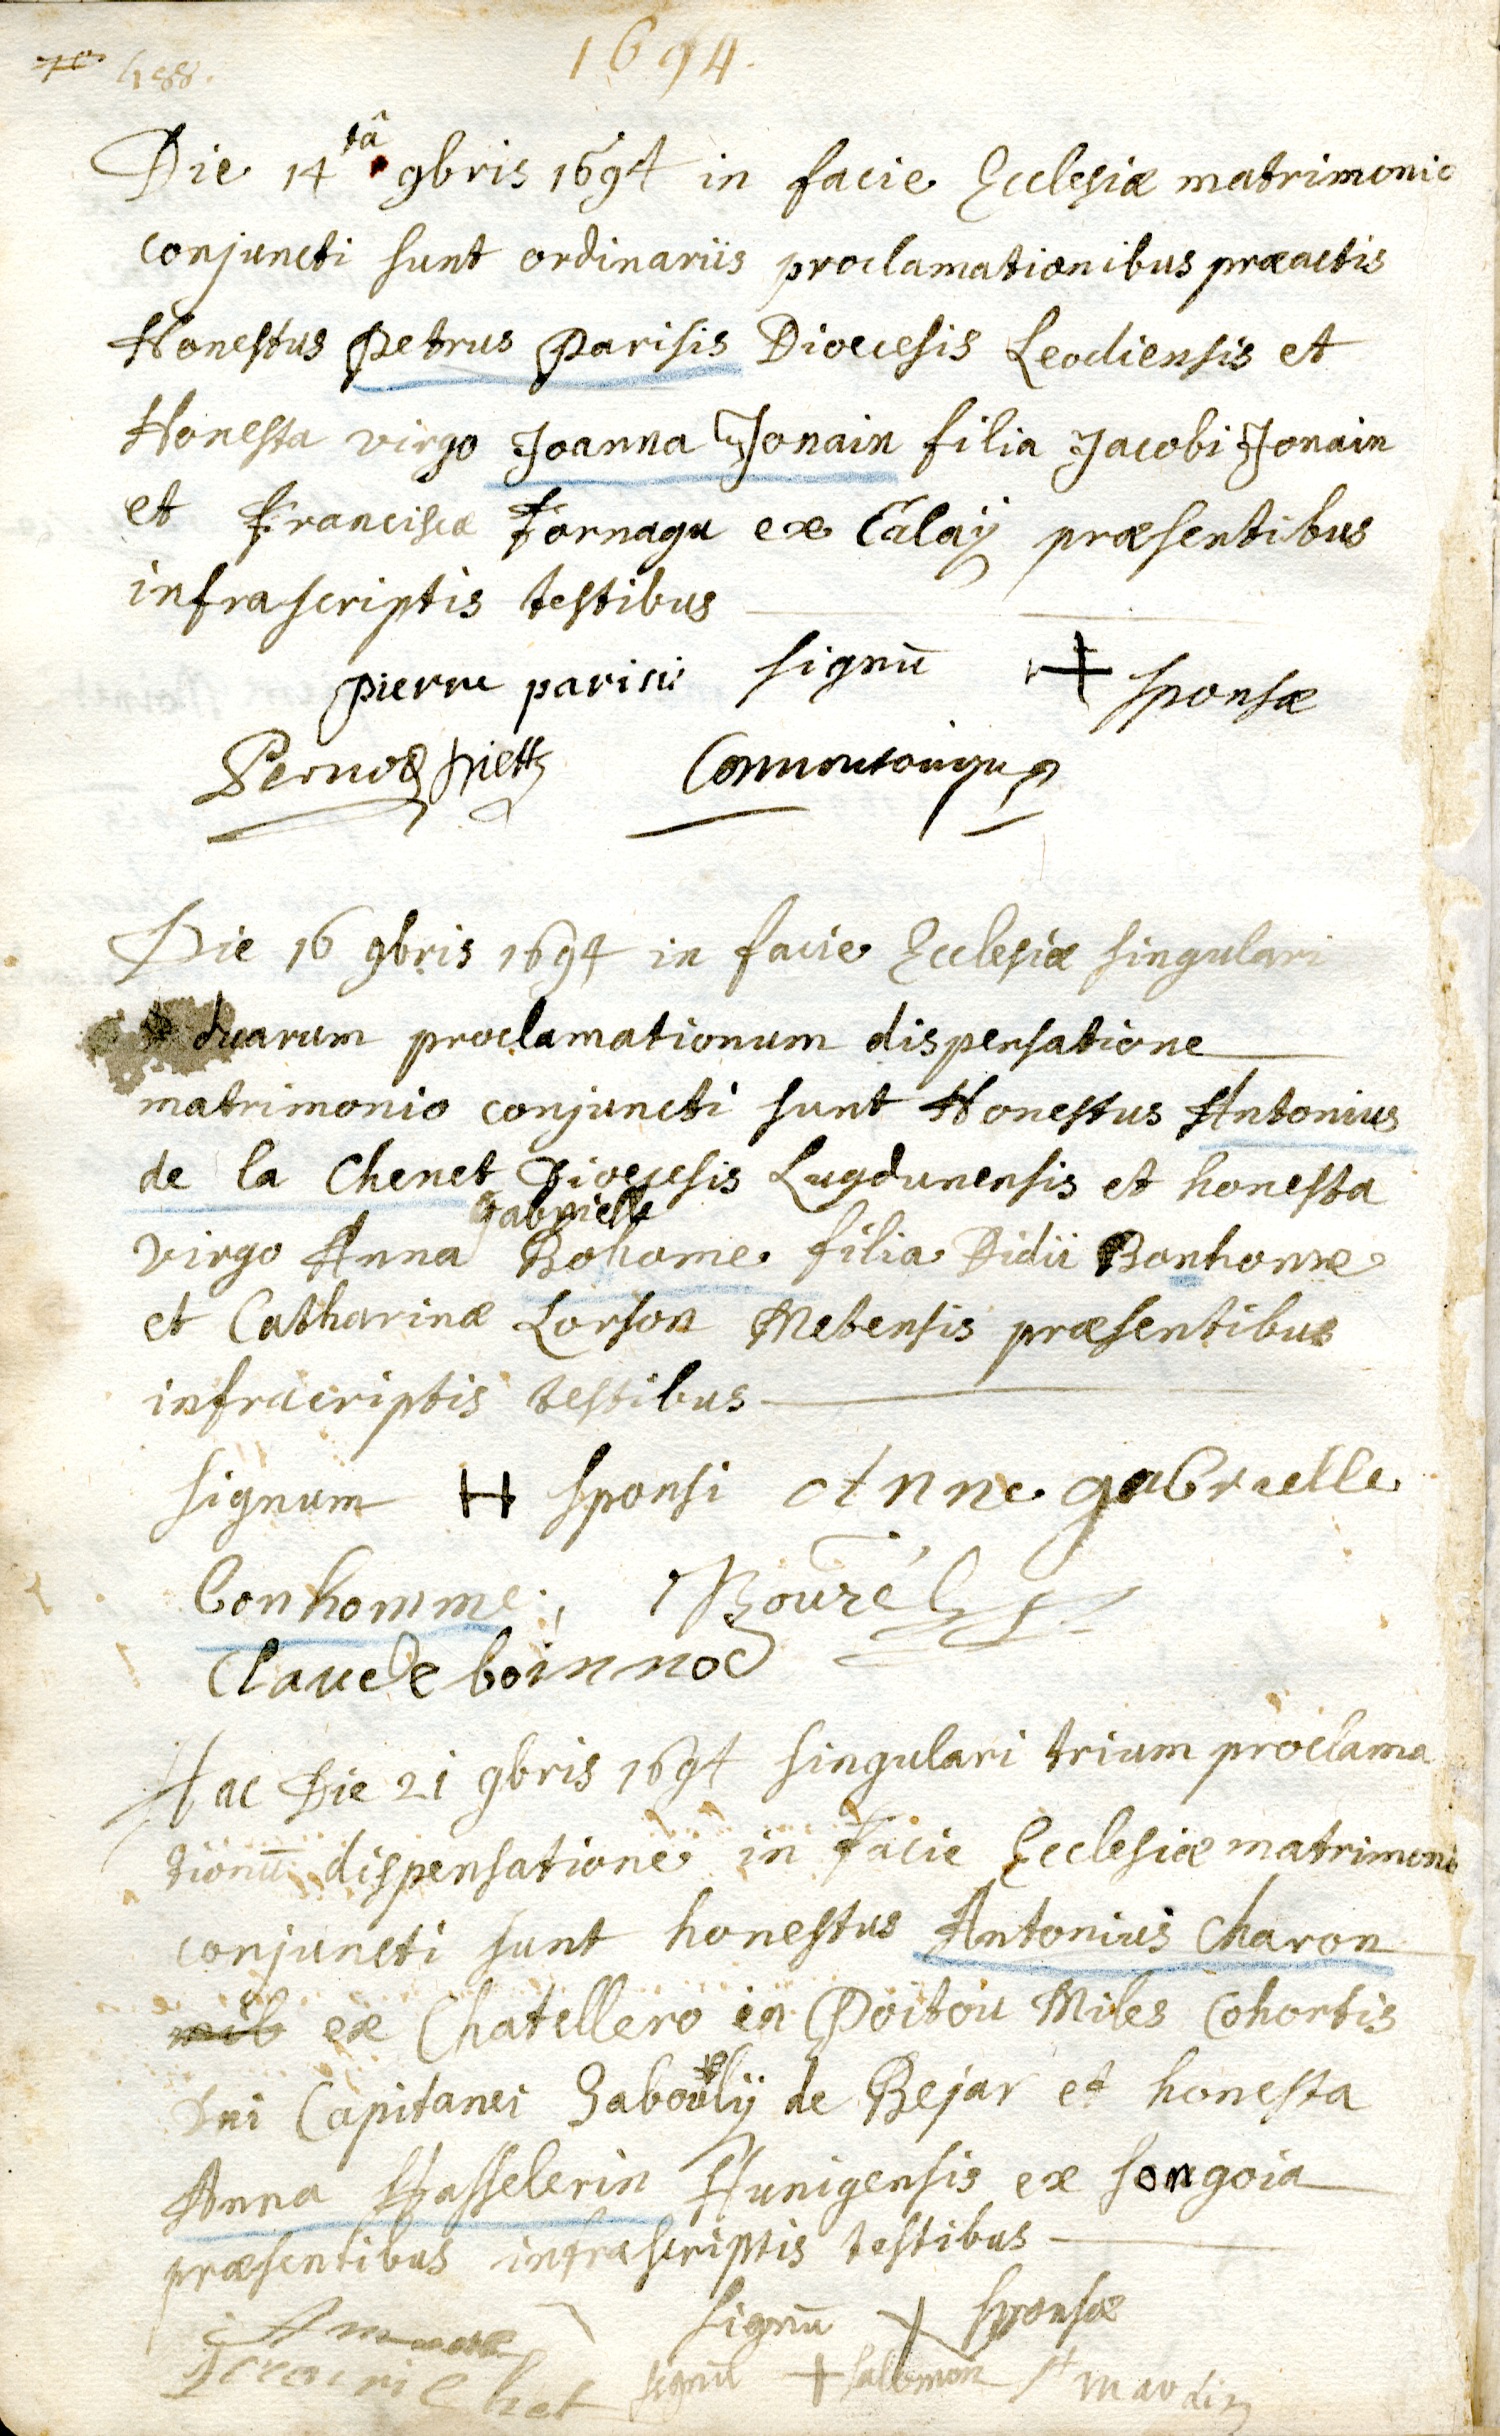 1694.
488.
Die 14tâ 9bris 1694 in facie Ecclesiæ matrimonio
conjuncti sunt ordinariis proclamationibus præactis
Honestus Petrus Parisis Dioecesis Leodiensis et
Honesta virgo Joanna Jonain filia Jacobi Jonain
et Franciscæ Fornagu ex Calaij præsentibus
infrascriptis testibus
pierre parisis signū + sponsæ
Die 16 9bris 1694 in facie Ecclesiæ singulari
duarum proclamationum dispensatione
matrimonio conjuncti sunt Honestus Antonius
de la Chenet Dioecesis Lugdunensis et honesta
Gabrielle
virgo Anna Bohome filia Didii Bonhome
et Catharinæ Lorson Metensis præsentibus
infracriptis testibus
signum H sponsi Anne gabrielle
bonhomme Bouré
Claude boinnod
Hac Die 21 9bris 1694 singulari trium proclama
tionū dispensatione in facie Ecclesiæ matrimonio
conjuncti sunt honestus Antonius Charon
ex Chatellero in Poitou Miles Cohortis
Dni Capitanei Saboulij de Bejar et honesta
Anna Hasselerin Hunigensis ex songoia
præsentibus infrascriptis testibus
signū + sponsæ
signū + salomon st mardin